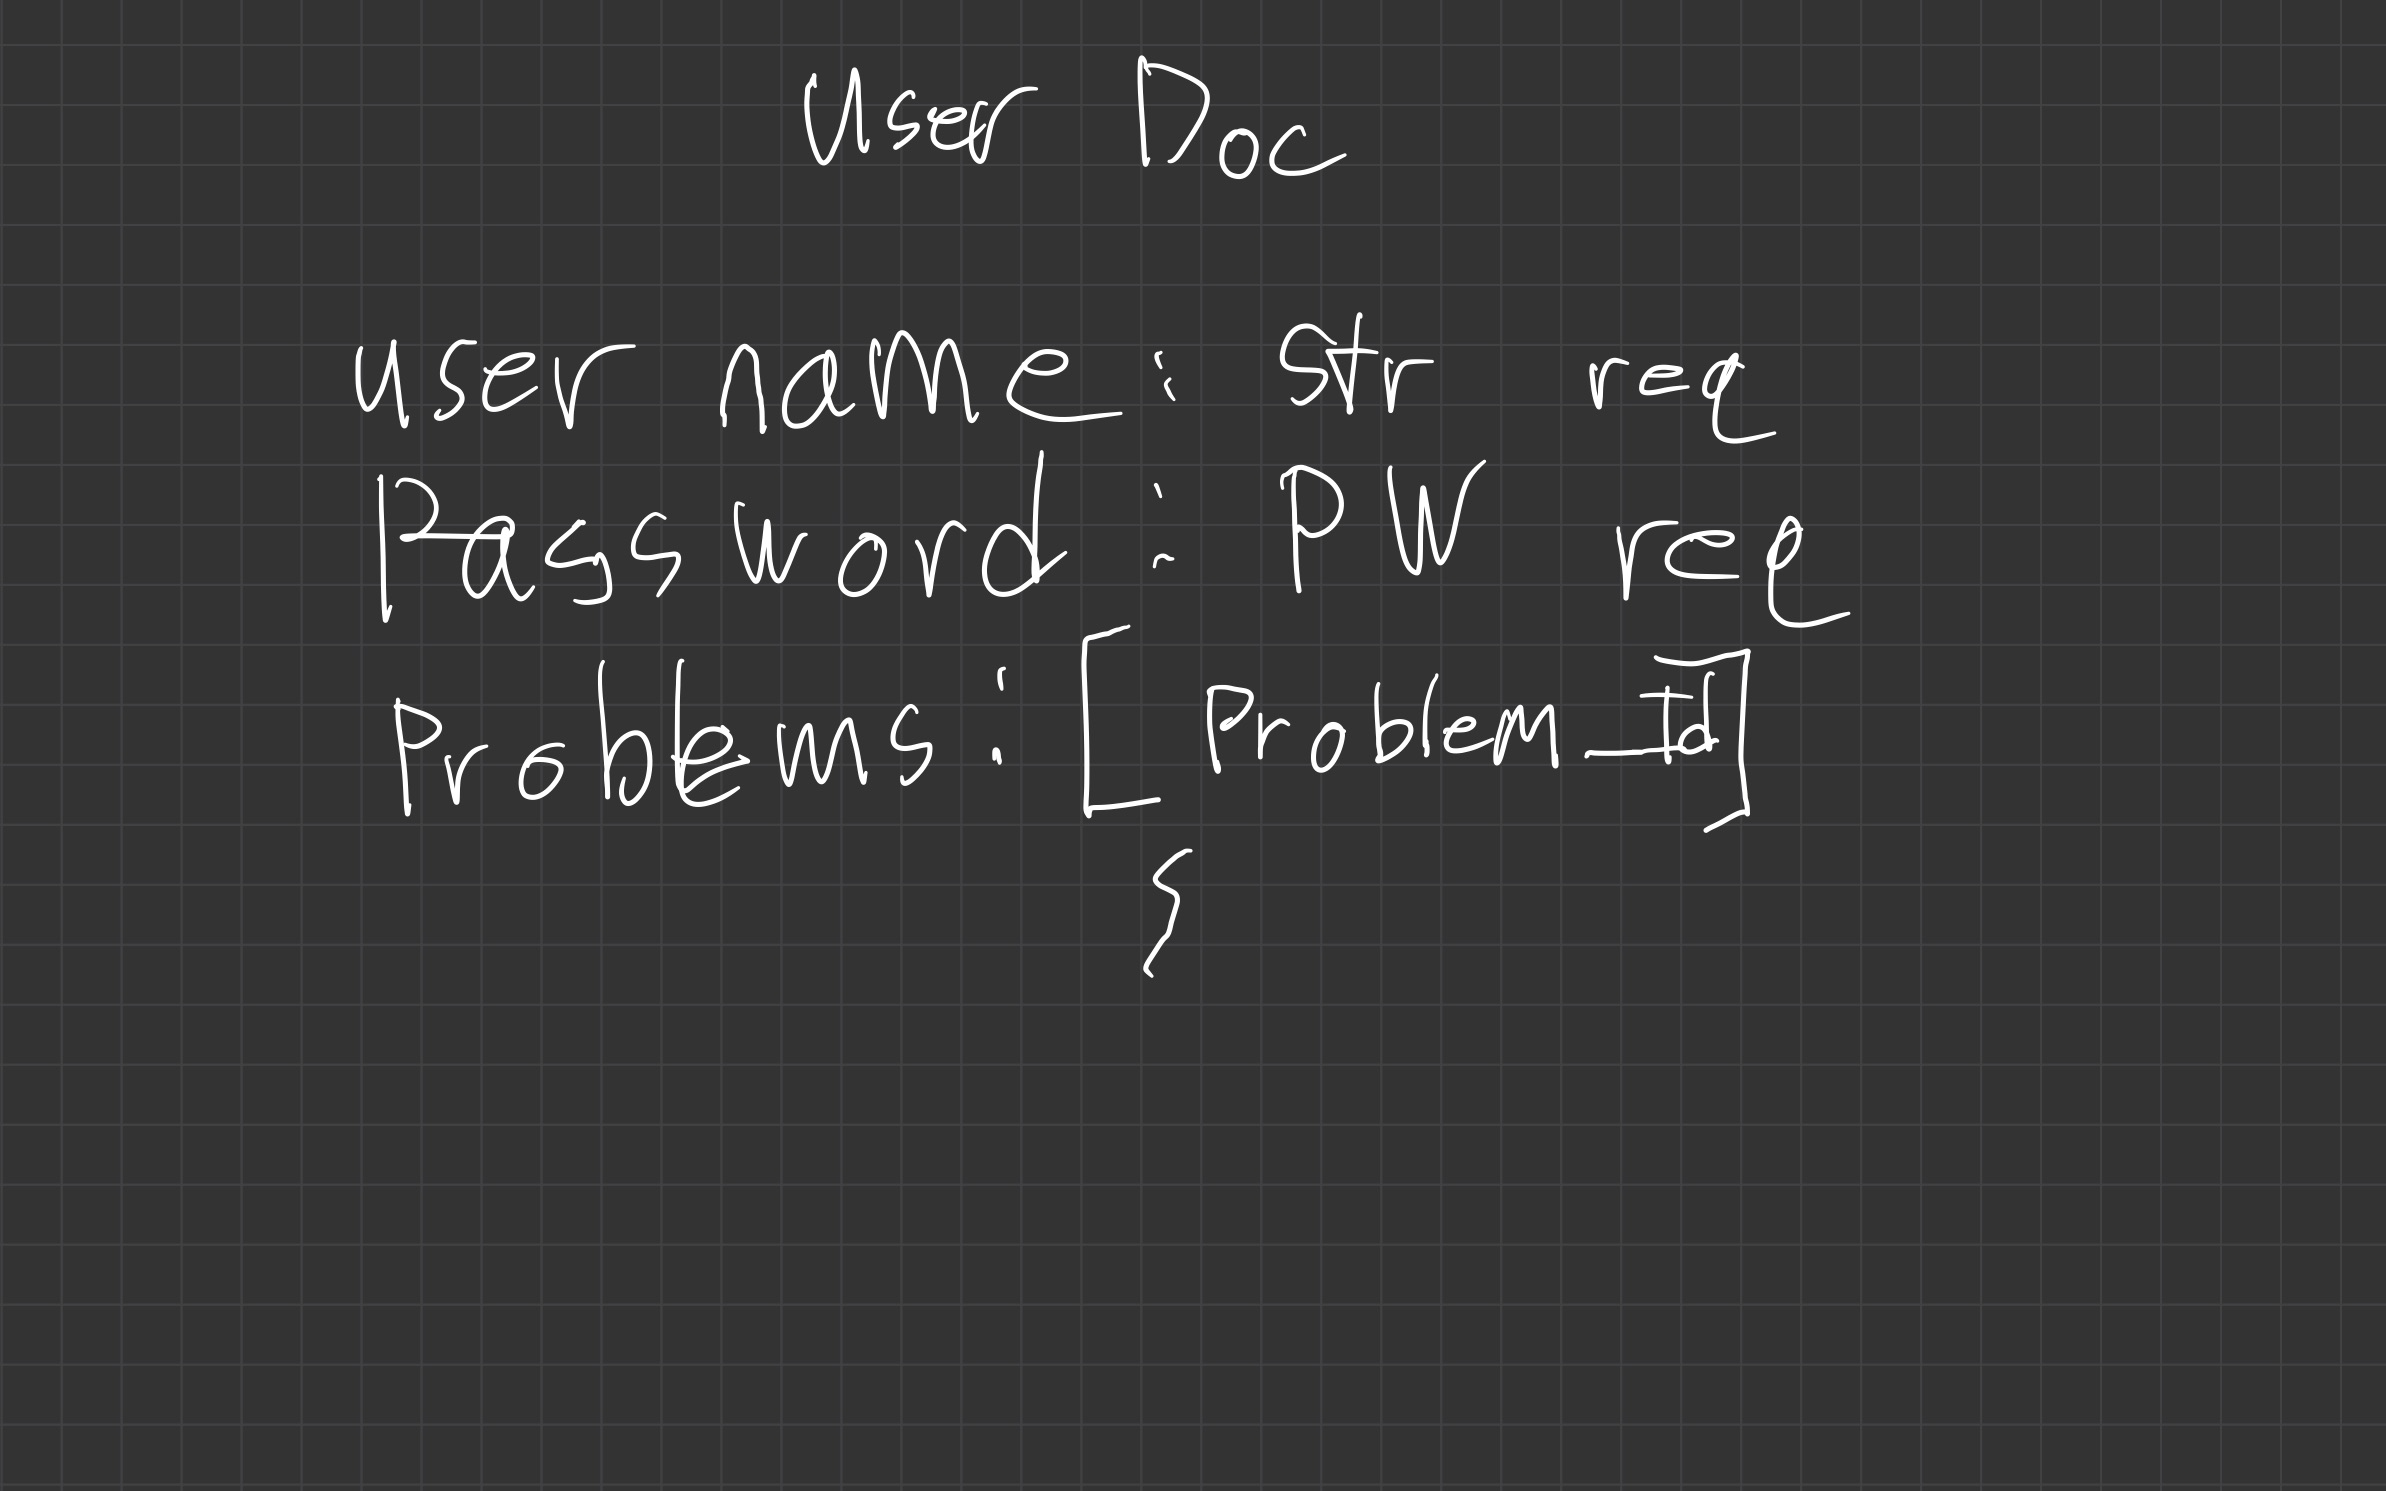 User Doc
user name : str req
Password : PW req
Problems : [ Problem_Id ]
{